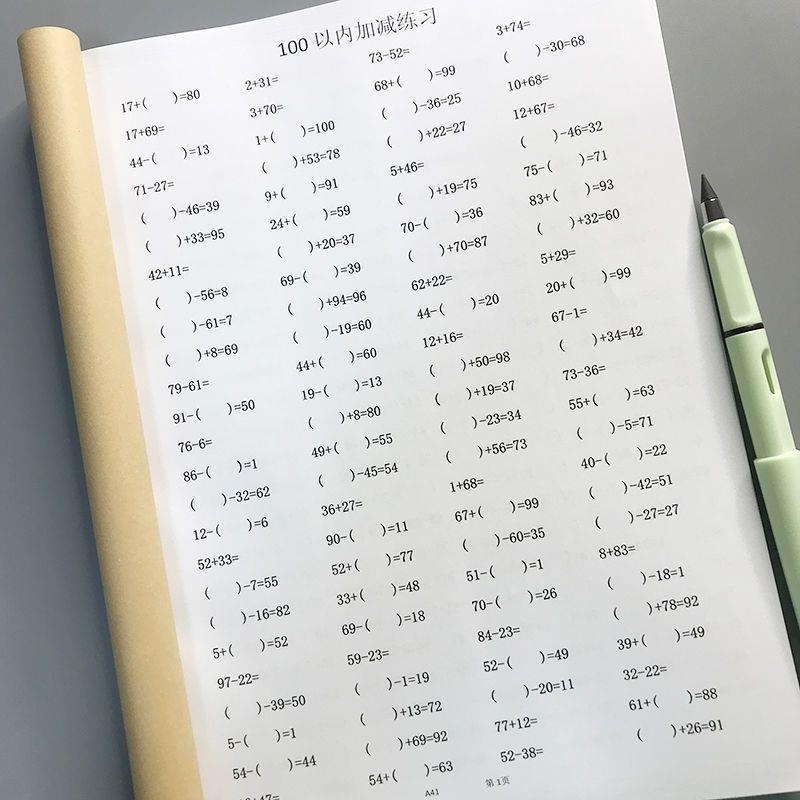 100 以内加减练习
17+( )=80 2+31= 73-52= 3+74=
17+69= 3+70= 68+( )=99 ( )-30=68
44-( )=13 1+( )=100 ( )-36=25 10+68=
71-27= ( )+53=78 ( )+22=27 12+67=
( )-46=39 9+( )=91 5+46= ( )-46=32
( )+33=95 24+( )=59 ( )+19=75 75-( )=71
42+11= ( )+20=37 70-( )=36 83+( )=93
( )-56=8 69-( )=39 ( )+70=87 ( )+32=60
( )-61=7 ( )+94=96 62+22= 5+29=
( )+8=69 ( )-19=60 44-( )=20 20+( )=99
79-61= 44+( )=60 12+16= 67-1=
91-( )=50 19-( )=13 ( )+50=98 ( )+34=42
76-6= ( )+8=80 ( )+19=37 73-36=
86-( )=1 49+( )=55 ( )-23=34 55+( )=63
( )-32=62 ( )-45=54 ( )+56=73 ( )-5=71
12-( )=6 36+27= 1+68= 40-( )=22
52+33= 90-( )=11 67+( )=99 ( )-42=51
( )-7=55 52+( )=77 ( )-60=35 ( )-27=27
( )-16=82 33+( )=48 51-( )=1 8+83=
5+( )=52 69-( )=18 70-( )=26 ( )-18=1
97-22= 59-23= 84-23= ( )+78=92
( )-39=50 ( )-1=19 52-( )=49 39+( )=49
5-( )=1 ( )+13=72 ( )-20=11 32-22=
54-( )=44 ( )+69=92 77+12= 61+( )=88
54+( )=63 52-38= ( )+26=91
A41 第 1页